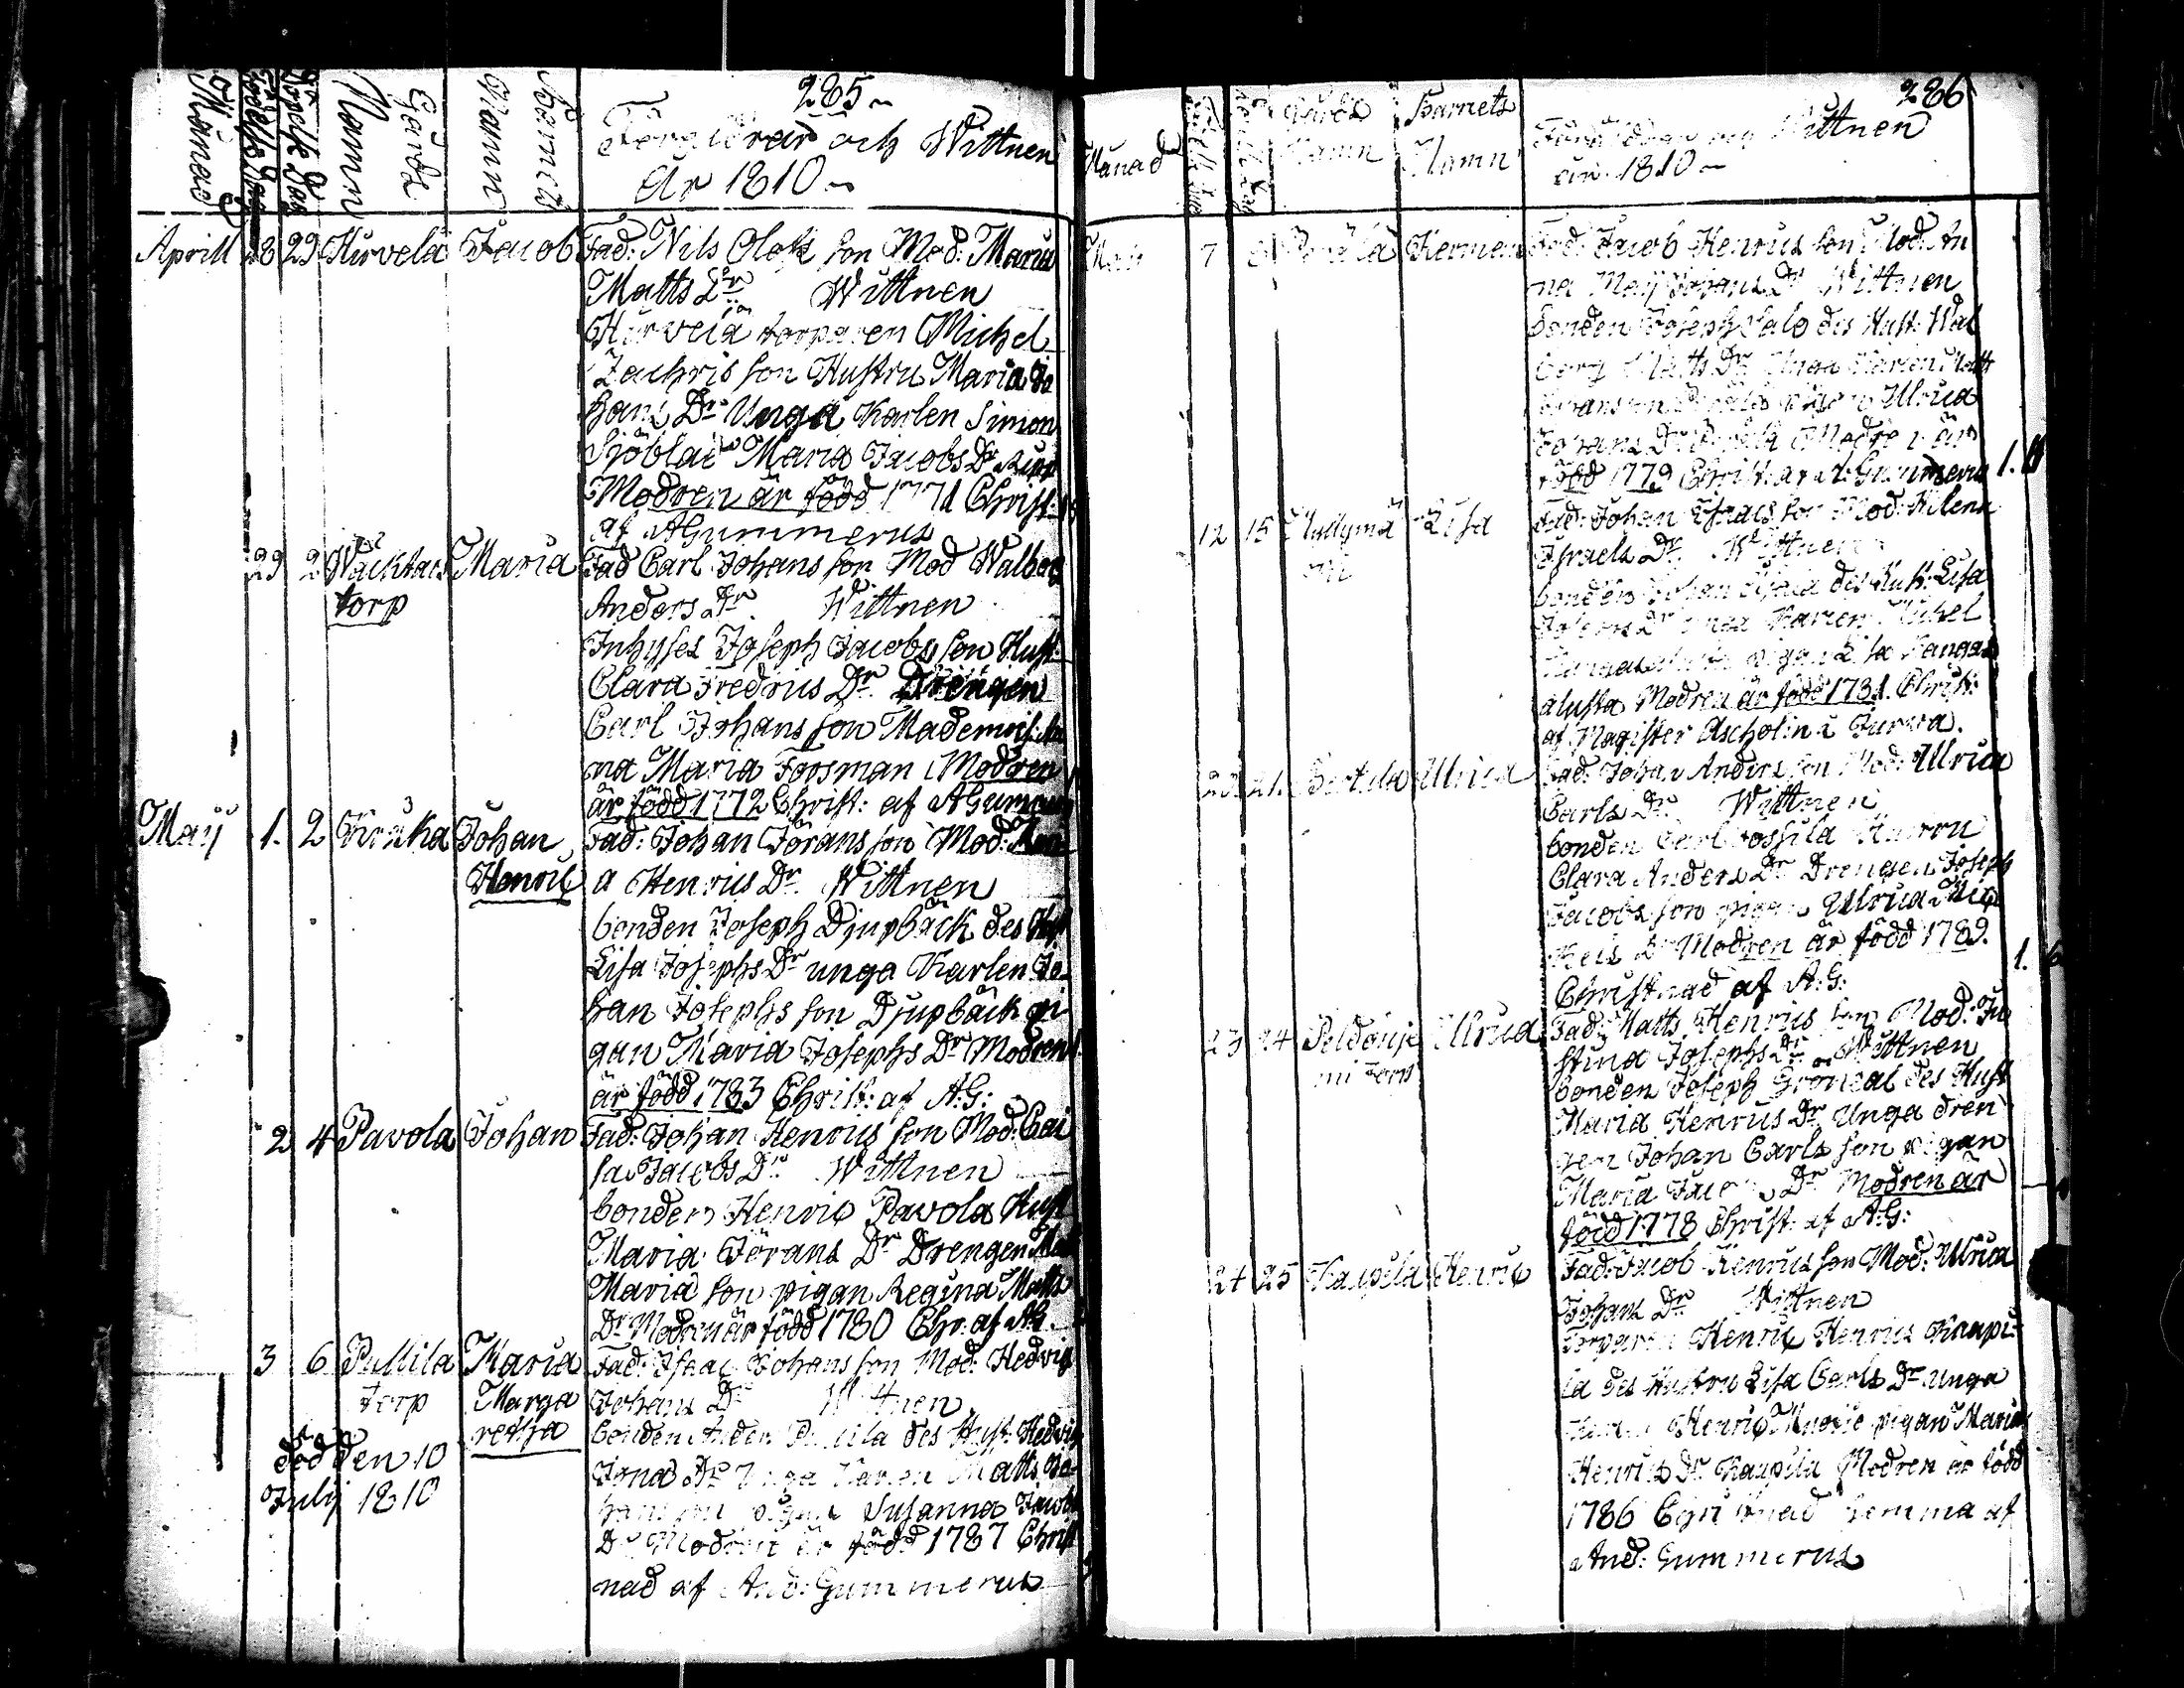 285
Månad
Födelse Dag
Döpelse Dag
Gårds Namn
Barnets Namn
Föräldrar och Wittnen
År 1810
Aprill 28 29 Hirvelä Jacob Fad: Nils Olofs son Mod: Maria
Matts Dr Wittnen
Hirvelä torparen Michel
Zachris son Hustru Maria Jo
hans Dr Unga Karlen Simon
Sjöblad Maria Jacobs Dr
Modren är född 1771 Christ:
af AGummerus
29 2 Wäcktars Maria Fad Carl Johans son Mod Walborg
torp Anders Dr Wittnen
Inhyses Joseph Jacobs son Hust:
Clara Fredrics Dr Drengen
Carl Johans son Mademois: An
na Maria Forsman Modren
är född 1772 Christ: af AGummerus
Maij 1. 2 Krüka Johan Fad: Johan Jörans son Mod: Ann
Henric a Henrics Dr Wittnen
bonden Joseph Djupbäck des Hust
Lisa Josephs Dr unga Karlen Jo
han Josephs son Djupbäck pi
gan Maria Josephs Dr Modren
är född 1783 Christ: af A:G:
2 4 Pavola Johan Fad: Johan Henrics son Mod: Cai
sa Jacobs Dr Wittnen
bonden Henric Pavola Hust
Maria Jörans Dr Drengen
Maria son pigan Regina Matts
Dr Modren är född 1780 Chr: af AG.
3 6 Pullila Maria Fad: Isaac Johans son Mod: Hedvig
Torp Marga Johans Dr Wittnen
retha bonden Anders Pullila des Hust: Hedvig
död den 10 Jona Dr Unga Karlen Matts Jo
Julij 1810 hans son pigan Susanna Jacobs
Dr Modren är född 1787 Christ
nad af And: Gummerus
286
Månad
Gårds Namn
Barnets Namn
Föräldrar och Wittnen
år 1810
Maij 7 Herman Fad: Jacob Henrics son Mod: An
na Maij Johans Dr Wittnen
bonden Joseph Salo des Hust: Wal
borg Matts Dr Unga Karlen Matts
Johansson pigan Ulrica
Johans Dr Modren är
född 1779 Christ: af A: Gummerus
12 15 Lisa Fad: Johan Isaacs son Mod: Helena
Israels Dr Wittnen
bonden Johan des Hust: Lisa
Josephs Dr unga Karlen Michel
Kangasalusta pigan Lisa Kangas
alusta Modren är född 1781. Christ:
af Magister Ascholin i Jurva.
23 24 Ulrica Fad: Johan Anders son Mod: Ulrica
Carls Dr Wittnen
bonden Carl Hustru
Clara Anders Dr Drengen Joseph
Jacobs son pigan Ulrica Mic
hels Dr Modren är född 1789.
Christnad af A:G:
23 24 Ulrica Fad: Matts Henrics son Mod: Ju
Torp stina Josephs Dr Wittnen
bonden Joseph Gröndal des Hust
Maria Henrics Dr Unga dren
gen Johan Carls son pigan
Maria Dr Modren är
född 1778 Christ: af A:G:
24 25 Kaupila Henric Fad: Jacob Henrics son Mod: Ulrica
Johans Dr Wittnen
Torparen Henric Henrics Kaupi
la des Hustru Lisa Carls Dr Unga
Henric pigan Maria
Henrics Dr Kaupila Modren är född
1786 Christnad hemma af
And: Gummerus